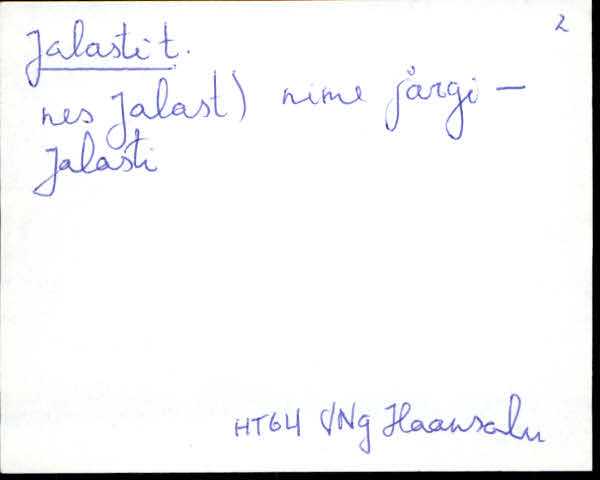 2
Jalasti t.
nes Jalast) nime järgi —
Jalasti
HT64 VNg Haavsalu